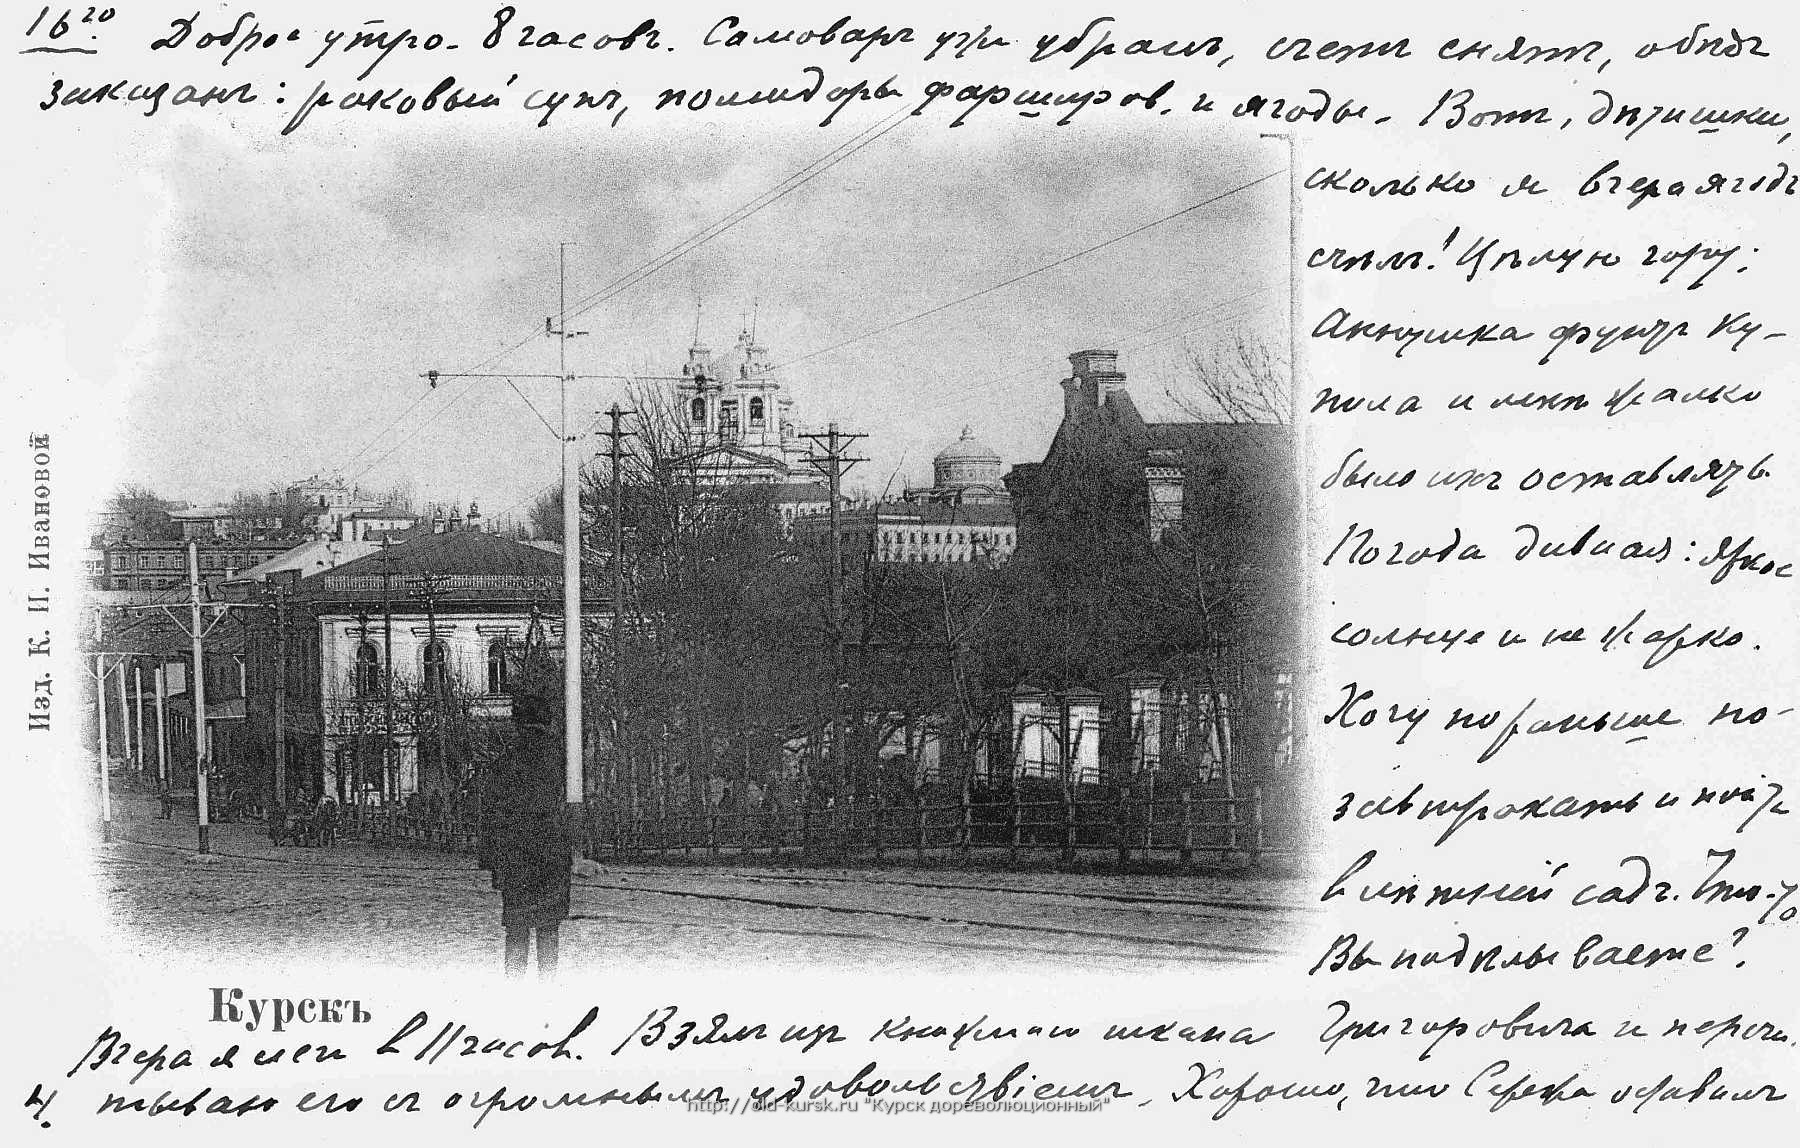 16 20.
Доброе утро. 8 часовъ. Самоваръ уже убранъ, счетъ снятъ, обѣдъ
заказанъ: раковый супъ, помидоры фарширов. и ягоды. Вотъ, дѣтишки,
сколько я вчера ягодъ
съѣлъ! Цѣлую гору;
Аннушка фунтъ ку-
пила и мнѣ жалко
было ихъ оставлять.
Погода дивная: яркое
солнце и не жарко.
Хочу пораньше по-
завтракать и пойти
въ лѣтній садъ. Что-то
Вы подѣлываете?
Изд. К. И. Ивановой
Курскъ
Вчера я легъ в 11 часов. Взялъ изъ книжнаго шкапа Григоровича и перечи-
4. тываю его съ огромнымъ удовольствіемъ. Хорошо, что Сережа оставилъ
http://old-kursk.ru "Курск дореволюционный"